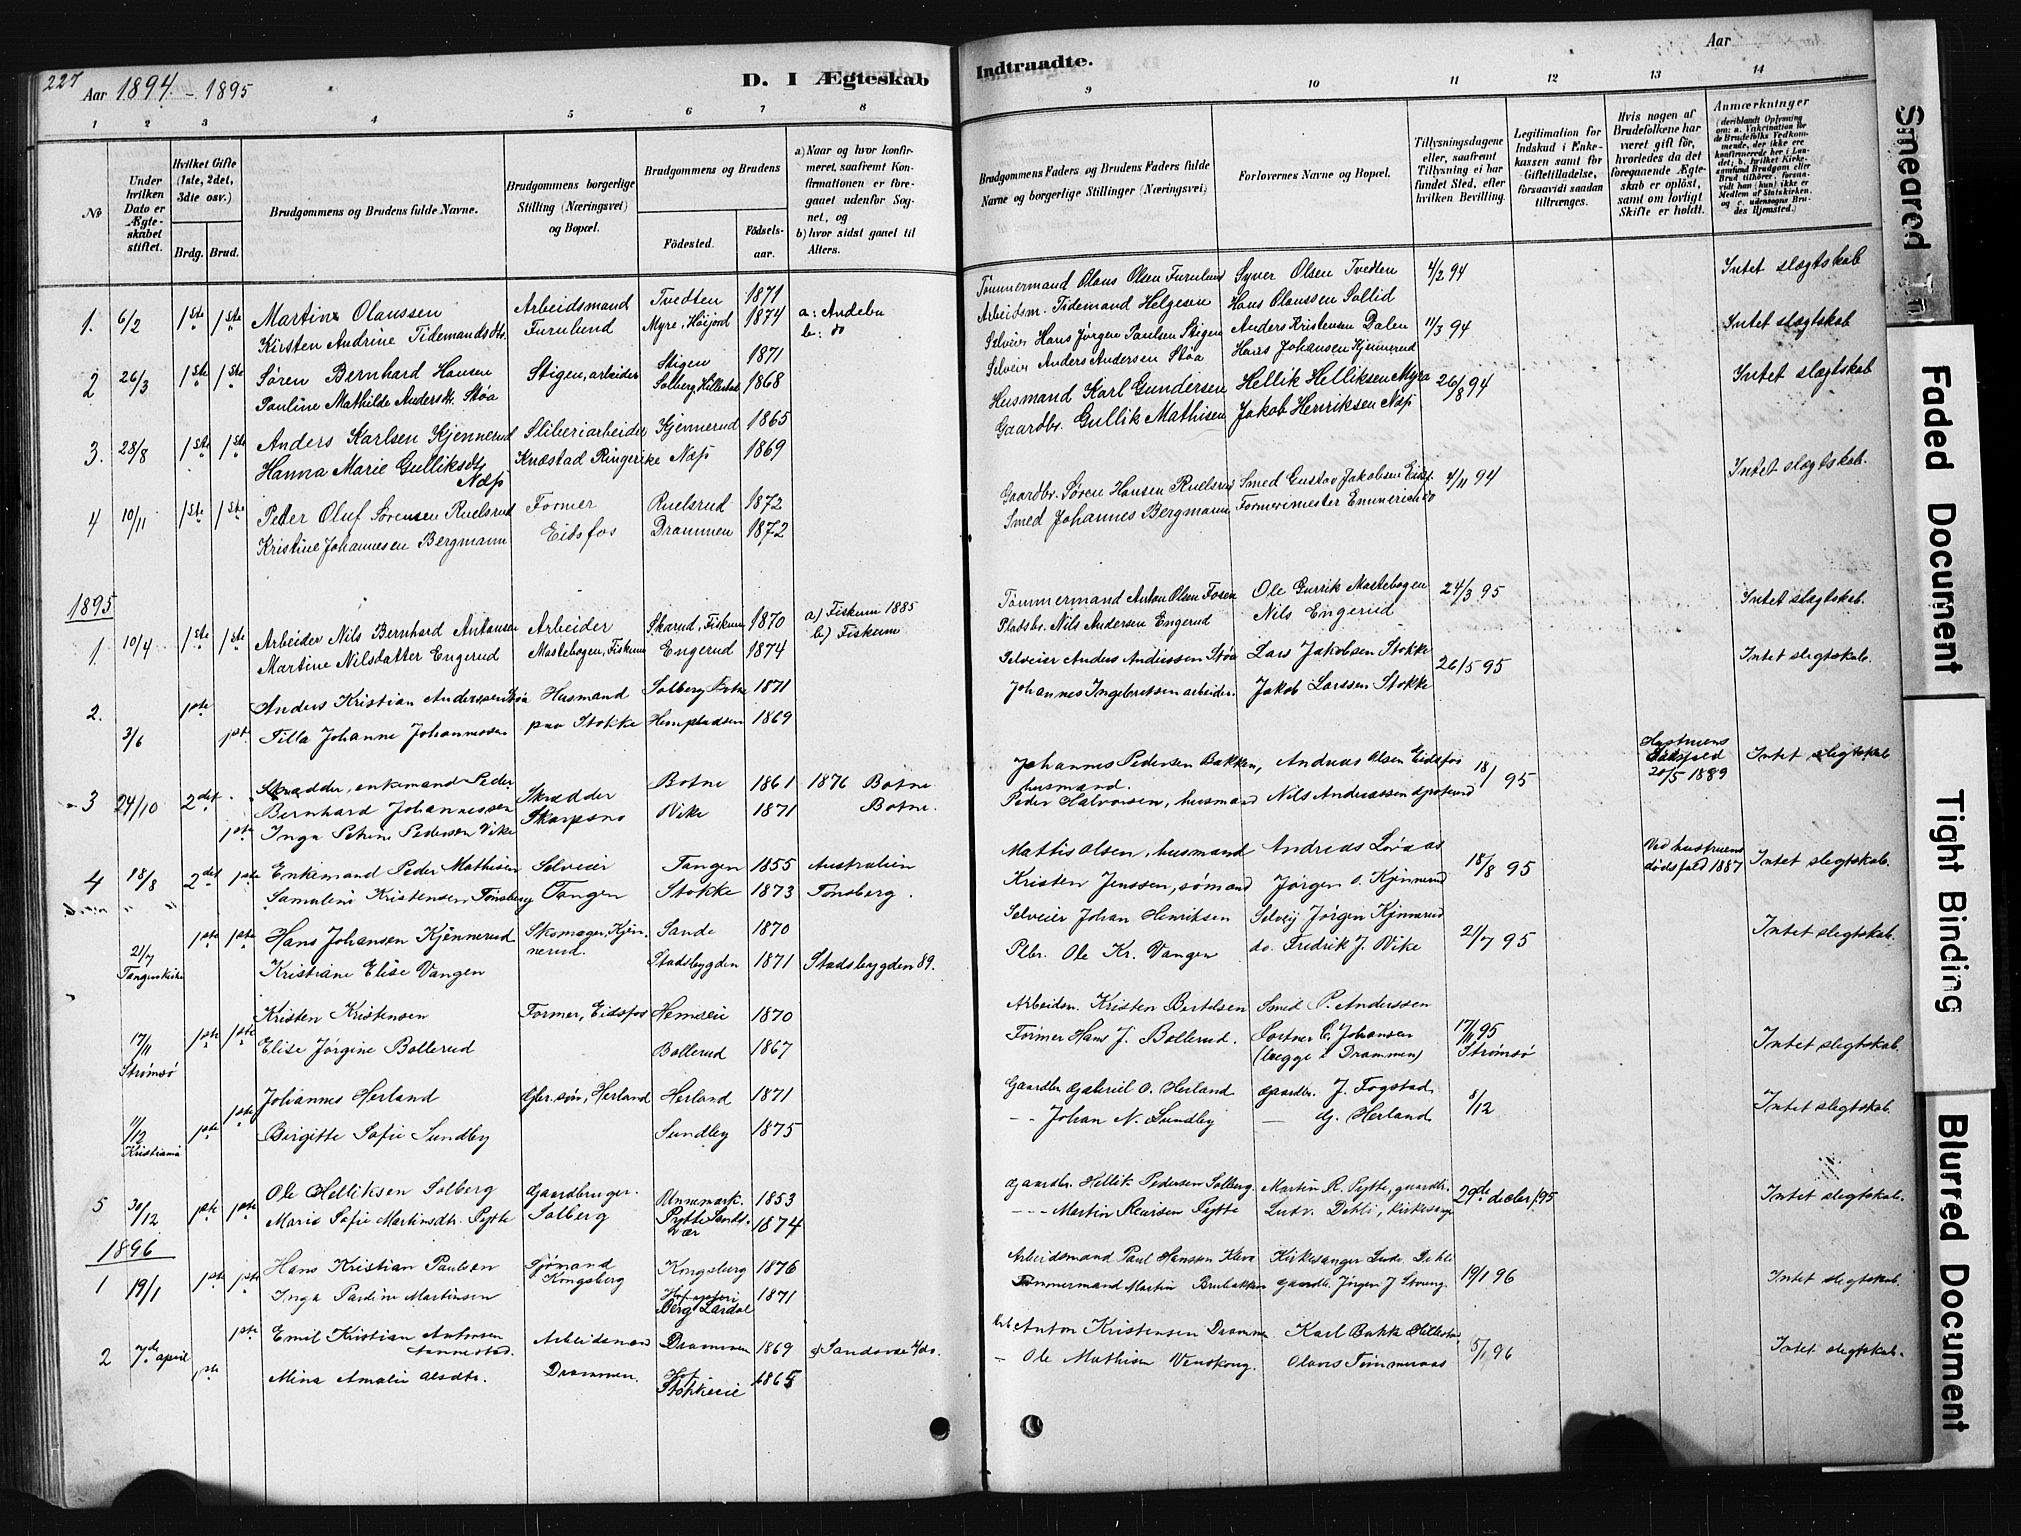 227
Aar 1894 - 1895
D. I Ægteskab
Indtraadte.
Aar
1 2 3 4 5 6 7 8
9 10 11 12 13 14
No
Under hvilken Dato er Ægteskabet stiftet.
Hvilket Gifte (1ste, 2det, 3die osv.)
Brdg. Brud.
Brudgommens og Brudens fulde Navne.
Brudgommens borgerlige Stilling (Næringsvei) og Bopæl.
Brudgommens og Brudens
Födested.
Födselsaar.
a) Naar og hvor konfirmeret, saafremt Konfirmationen er foregaaet udenfor Sognet, og
b) hvor sidst gaaet til Alters.
Brudgommens Faders og Brudens Faders fulde Navne og borgerlige Stillinger (Næringsvei)
Forlovernes Navne og Bopæl.
Tillysningsdagene eller, saafremt Tillysning ei har fundet Sted, efter hvilken Bevilling.
Legitimation for Indskud i Enkekassen samt for Giftetilladelse, forsaavidt saadan tiltrænges.
Hvis nogen af Brudefolkene har været gift för, hvorledes da det foregaaende Ægteskab er oplöst, samt om lovligt Skifte er holdt.
Anmærkninger
1. 6/2 1ste 1ste Martin Olaussen Arbeidsmand Tvedten 1871 a: Andebu
Kirsten Andrine Tidemandsdt. Furulund Myre, Höijord 1874 b: do
Tömmermand Olaus Olsen Furulund Syver Olsen Tvedten 4/2 94 Intet slægtskab
Arbeidsm. Tidemand Helgesen Hans Olaussen Sollid
2 26/3 1ste 1ste Søren Bernhard Hansen Stigen, arbeider Stigen 1871
Pauline Mathilde Andersdt. Støa Solberg, Hillestad 1868
Selveier Hans Jørgen Paulsen Stigen Anders Kristensen Dalen 11/3 94 Intet slægtskab
Selveier Anders Andersen Støa Hans Johansen Kjennerud
3. 28/8 1ste 1ste Anders Karlsen Kjennerud Sliberiarbeider Kjennerud 1865
Hanna Marie Gulliksdt. Næs Knæstad Ringerike Næs 1869
Husmand Karl Gundersen Hellik Helliksen Myra 26/8 94 Intet slægtskab
Gaardbr. Gullik Mathisen Jakob Henriksen Næs
4 10/11 1ste 1ste Peder Oluf Sørensen Ruelsrud Former Ruelsrud 1872
Kristine Johannesen Bergmann Eidsfos Drammen 1872
Gaardbr. Søren Hansen Ruelsrud Smed Gustav Jakobsen Eidsf. 4/11 94 Intet slægtskab.
Smed Johannes Bergmann Formermester Emmerich do
1895
1. 10/4 1ste 1ste Arbeider Nils Bernhard Antonsen Arbeider Skarud, Fiskum 1870 a) Fiskum 1885
Martine Nilsdatter Engerud Mastebogen, Fiskum Engerud 1874 b) Fiskum
Tømmermand Anton Olsen Fosen Ole Gurrik Mastebogen 24/3 95 Intet slegtskab.
Pladsbr. Nils Andersen Engerud Nils Engerud
2. 3/6 1ste 1ste Anders Kristian Anderssen Støa Husmand Solberg Botne 1871
Tilla Johanne Johannessen paa Stokke Hempladsen 1869
Selveier Anders Anderssen Støa Lars Jakobsen Stokke 26/5 95 Intet slegtskab.
Johannes Ingebretsen arbeider. Jakob Larssen Stokke
3 24/10 2det 1ste Skrædder, enkemand Peder Bernhard Johannessen Skrædder Botne 1861 1876 Botne
Inga Petrine Pedersen Vike Skarpsno Vike 1871 Botne.
Johannes Pedersen Bakken, husmand. Andreas Olsen Eidsfos 18/ 95 Hustruens dødsfald 20/5 1889 Intet slegtskab
Peder Halvorsen, husmand Nils Andreassen
4 18/8 2det 1ste Enkemand Peder Mathisen Selveier Tangen 1855 Australien
Samuline Kristensen Tønsberg Tangen Stokke 1873 Tønsberg.
Mattis Olsen, husmand Andreas Løvaas 18/8 95 Ved hustruens dødsfald 1887 Intet slegtskab.
Kristen Jenssen, sømand Jørgen O. Kjennerud
21/7 1ste 1ste Hans Johansen Kjennerud Skomager, Kjennerud. Sande 1870
Tangenkirke Kristiane Elise Vangen Stadsbygden 1871 Stadsbygden 89.
Selveier Johan Henriksen Selvei. Jørgen Kjennerud 21/7 95 Intet slegtskab.
Plbr. Ole Kr. Vangen do. Fredrik J. Vike
17/11 Strømsø 1ste 1ste Kristen Kristensen Former, Eidsfos Hemseie 1870
Elise Jørgine Bollerud Bollerud 1867
Arbeidsm. Kristen Bertelsen Smed P. Anderssen 17/11 95 Strømsø Intet slegtskab.
Former Hans J. Bollerud. Portner C. Johansen (begge i Drammen)
11/12 Kristiania 1ste 1ste Johannes Herland Gbr. søn, Herland Herland 1871
Birgitte Sofie Sundby Sundby 1875
Gaardbr Gabriel O. Herland Gaardbr. J. Fogstad 8/12 Intet slegtskab.
— Johan N. Sundby — Gj. Herland
5 30/12 1ste 1ste Ole Helliksen Solberg Gaardbruger. Unnemark. 1853
Marie Sofie Martinsdtr. Pytte Solberg Pytte Sandsvær 1874
Gaardbr. Hellik Pedersen Solberg. Martin R. Pytte, gaardbr. 29de decbr. 95 Intet slegtskab.
— Martin Reiersen Pytte Ludv. Dehli, Kirkesanger
1896
1 19/1 1ste 1ste Hans Kristian Paulsen Sjømand Kongsberg 1876
Inga Pauline Martinsen Kongsberg Berg Lardal 1871
Arbeidsmand Paul Hansen Kleva Kirkesanger Ludv. Dehli 19/1 96 Intet slegtskab.
Tømmermand Martin Brubakken gaardbr. Jørgen J.
2 7de april 1ste 1ste Emil Kristian Antonsen Arbeidsmand Drammen 1869 a) Sandsvær b/do.
Mina Amalie Olsdtr. Drammen. Hof 1865
Arb. Anton Kristensen Drammen Karl Bakke Hillestad 5/1 96 Intet slegtskab.
— Ole Mathisen Venskong. Olavis Tømmeraas
Smeared
Faded Document
Tight Binding
Blurred Document